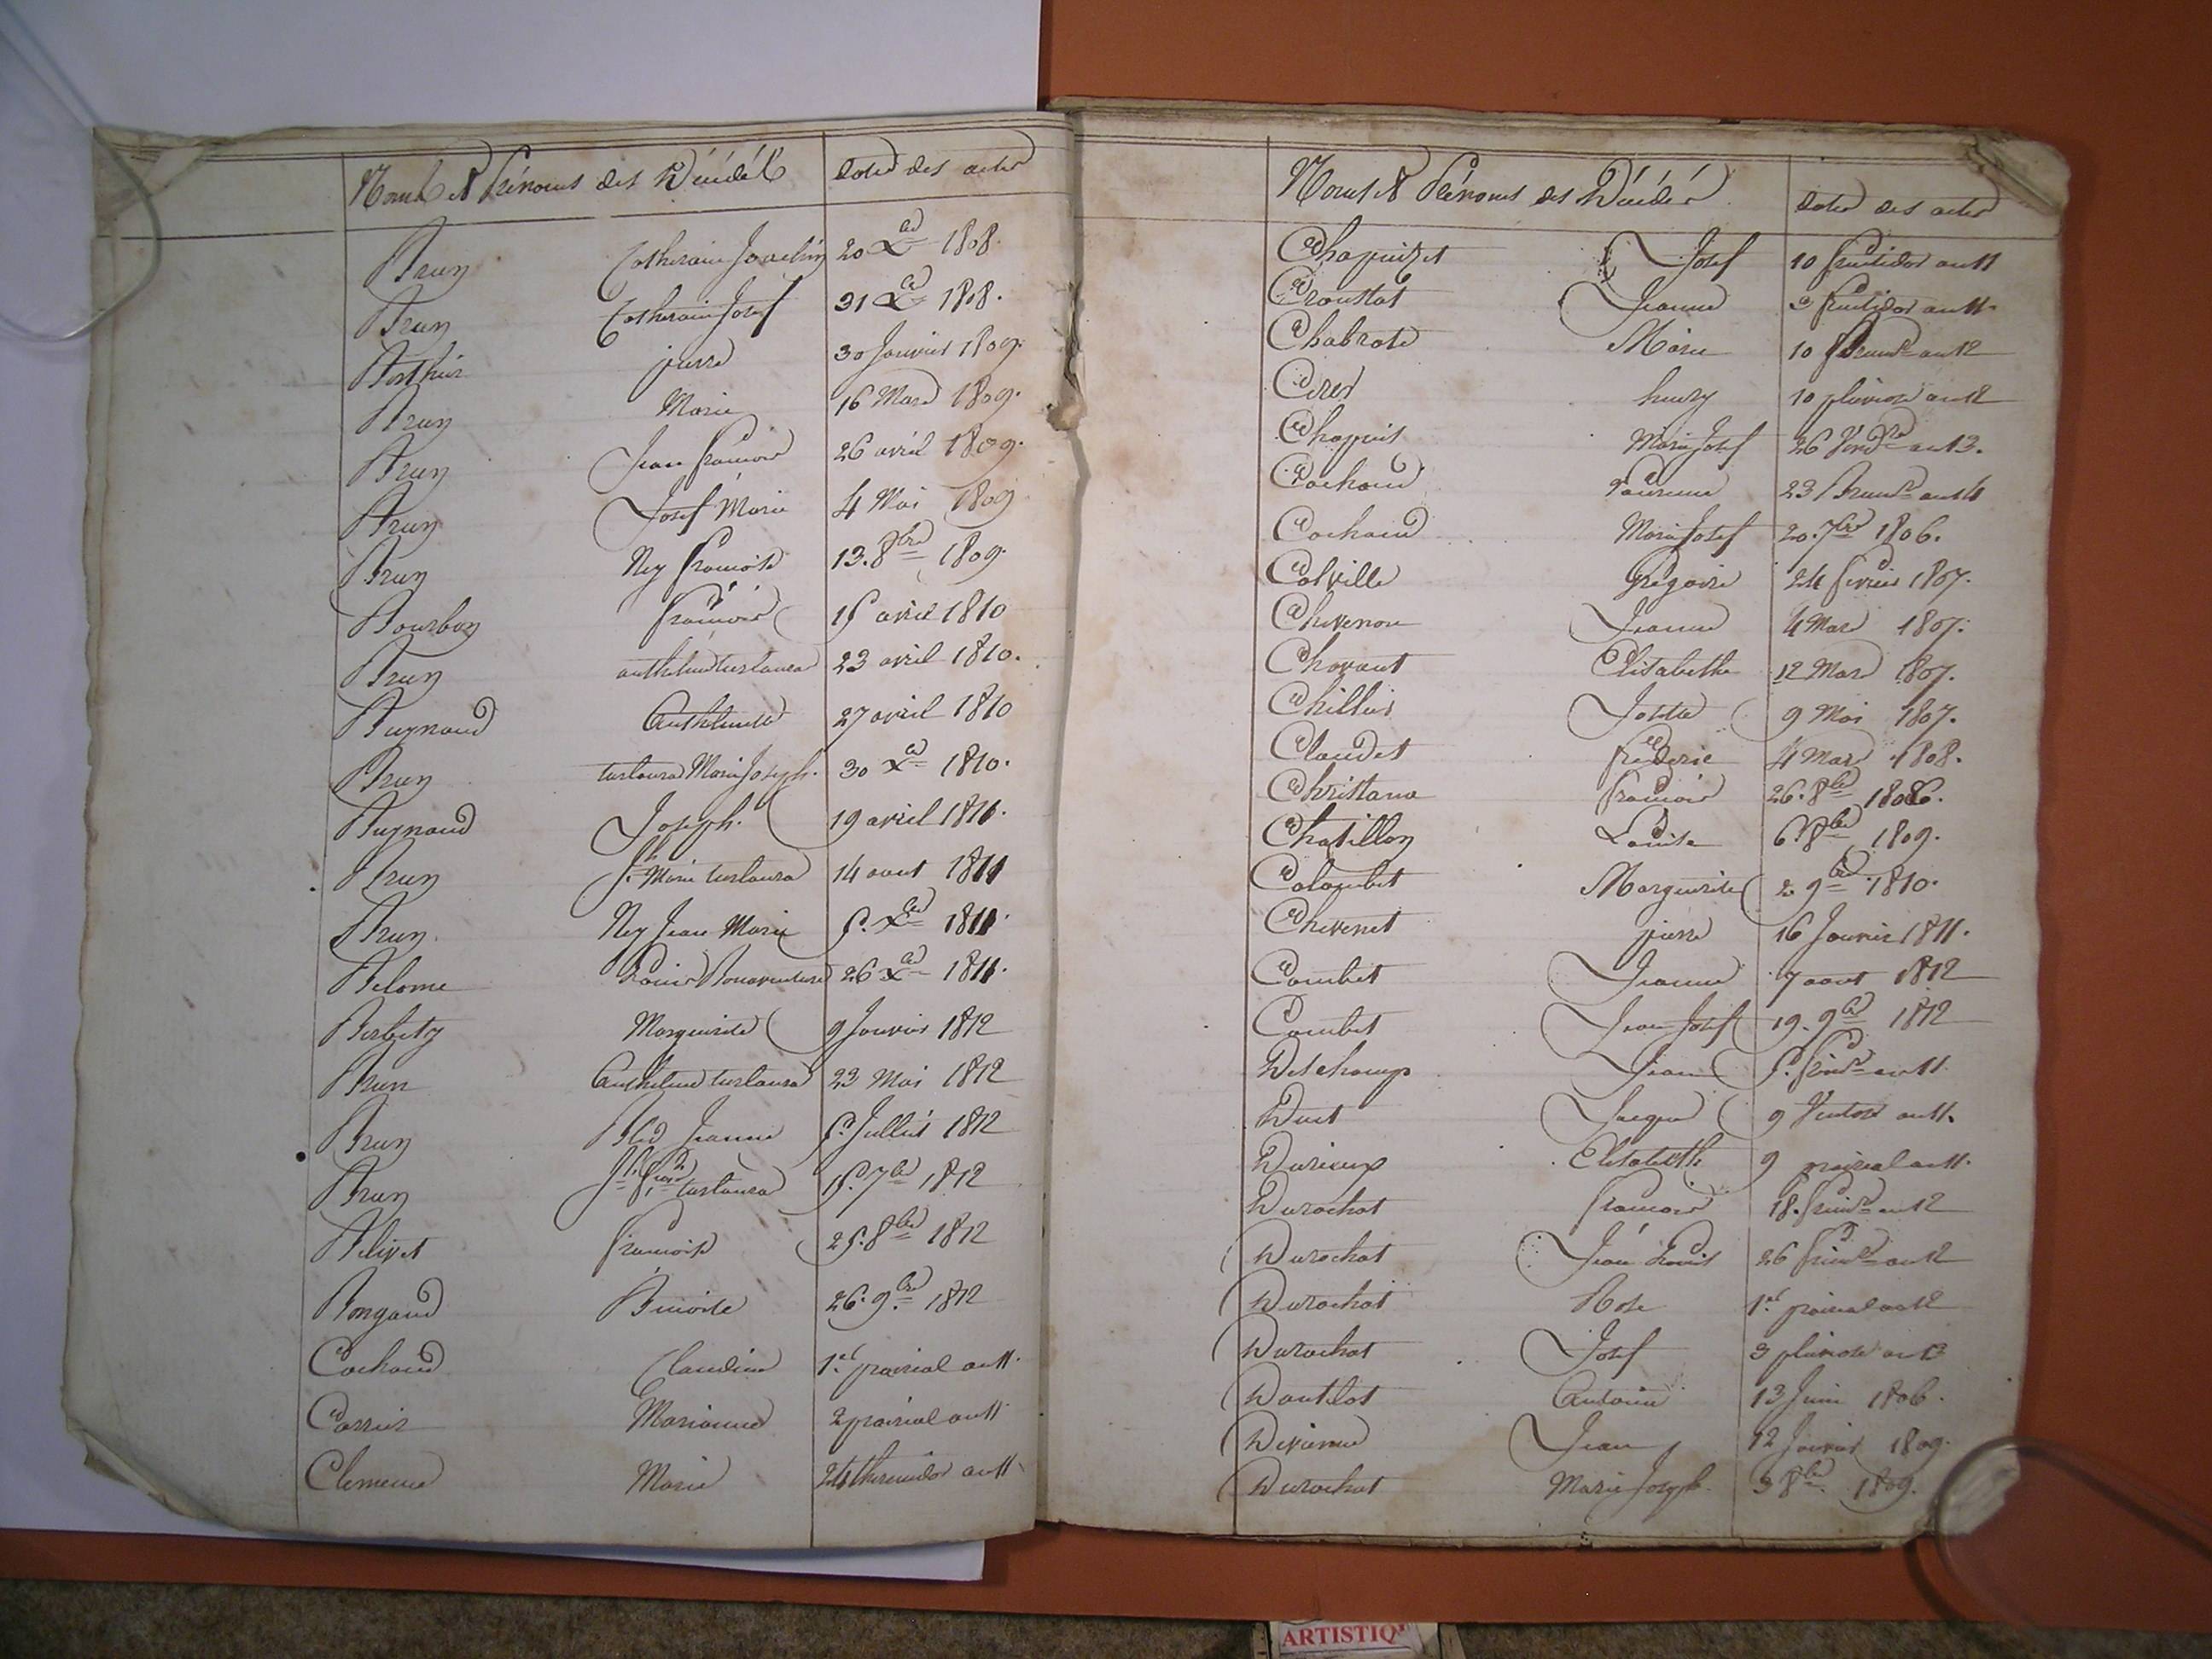 Noms et Prénoms des Décédés dates des actes
Brun Catherine Josephine 20 Xbre 1808.
Brun Catherine Josef 31 Xre 1808.
Berthier pierre 30 Janvier 1809.
Brun Marie 16 Mars 1809.
Brun Jean françois 26 avril 1809.
Brun Josef Marie 4 Mai 1809
Brun Ney françoise 13. 8bre 1809.
Bourbon françois 15 avril 1810
Brun 23 avril 1810.
Bugnaud Anthelmette 27 avril 1810
Brun Marie Joseph. 30 Xre 1810.
Bugnaud Joseph. 19 avril 1811.
Brun Marie 14 aout 1811
Brun Ney Jean Marie 5. Xbre 1811.
Belome Louis Bonaventure 26 Xre 1811.
Berbetz Marguerite 9 Janvier 1812
Brun 23 Mai 1812
Brun Jeanne 5. Juillet 1812
Brun 15. 7re 1812
Belivet françoise 25. 8bre 1812
Bongaud Benoite 26. 9bre 1812
Cochaud Claudine 1er prairial an 11.
Carrier Marianne 2 prairial an 11.
Clemence Marie 24 thermidor an 11
Noms et Prénoms des Décédés dates des actes
Chapuizet Josef 10 fructidor an 11
Croustat Jeanne 3 fructidor an 11.
Chabrote Marie 10 an 12
Cret henry 10 pluviose an 12
Chapuis Marie Josef 26 Vend.re an 13.
Cochaud Laurence 23 Brum.re an 14
Cochaud Marie Josef 20. 7bre 1806.
Colville Gregoire 24 fevrier 1807.
Chevenon Jeanne 4 Mars 1807.
Chavant Elisabethe 12 Mars 1807.
Chillier Josette 9 Mai 1807.
Claudet frederic 4 Mars 1808.
Christana françois 26. 8bre 1808.
Chatillon Louise 6. 8bre 1809.
Colombet Marguerite 2 9bre 1810.
Chevenet pierre 16 Janvier 1811.
Combet Jeanne 7 aout 1812
Combet Jean Josef 19. 9re 1812
Deschamp Jean 5. an 11
Duet Jacque 9 Ventose an 11.
Durieux Elisabeth 9 prairial an 11.
Durochat françois 18. an 12
Durochat Jean Louis 26 an 12
Durochat Rose 1er prairial an 12
Durochat Josef 3 pluviose an 13
Dautelot Antoine 13 Juin 1806.
Devienne Jean 12 Janvier 1809.
Durochat Marie Joseph. 3 8bre 1809.
ARTISTIQ